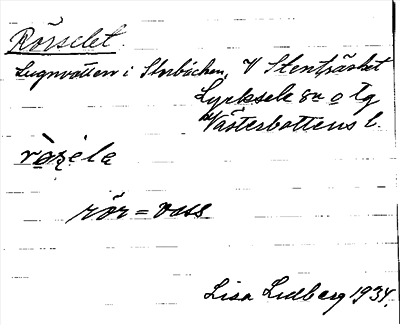 Rörselet.
Lugnvatten i Storbäcken, V Stenträsket
Lycksele sn o tg
Västerbottens l.
rör = vass
Lisa Lidberg 1934.